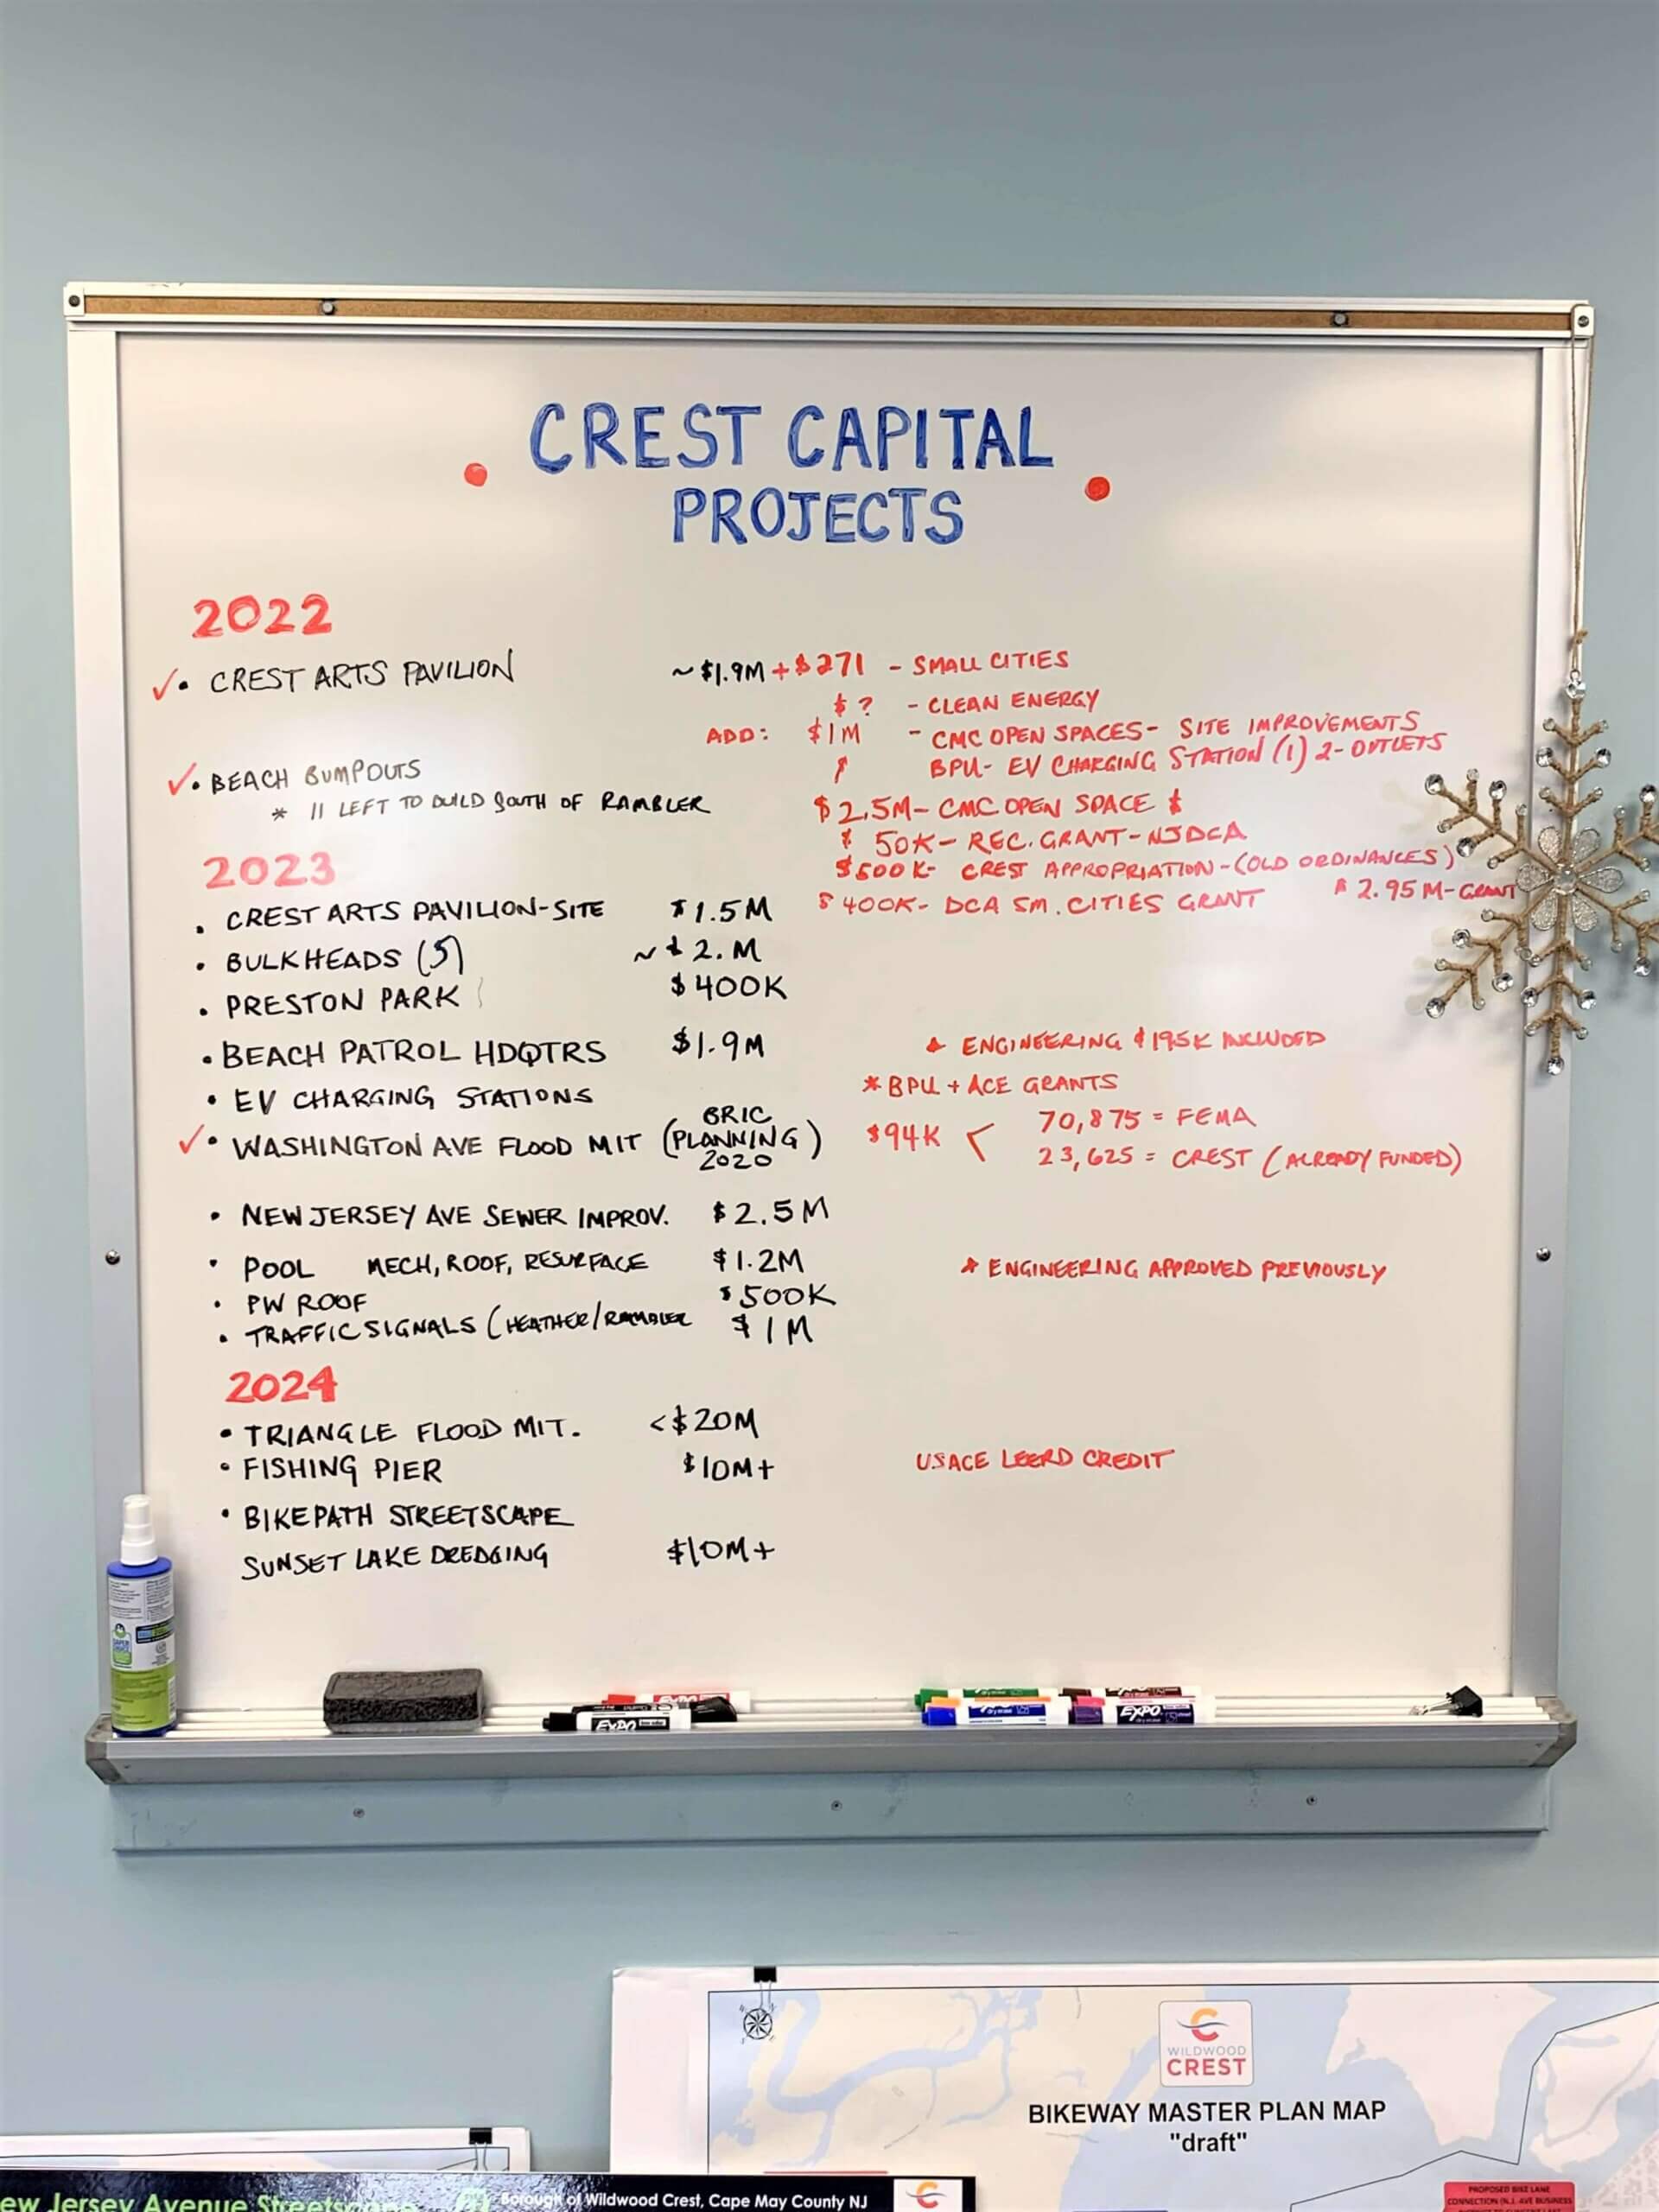 CREST CAPITAL
PROJECTS
2022
✓ • CREST ARTS PAVILION ~ $1.9M + $271 - SMALL CITIES
$ ? - CLEAN ENERGY
ADD: $1M - CMC OPEN SPACES - SITE IMPROVEMENTS
BPU - EV CHARGING STATION (1) 2-OUTLETS
✓ • BEACH BUMPOUTS
* 11 LEFT TO BUILD SOUTH OF RAMBLER
$2.5M - CMC OPEN SPACE $
$ 50K - REC. GRANT - NJDCA
$500K - CREST APPROPRIATION - (OLD ORDINANCES)
$400K - DCA SM. CITIES GRANT $2.95M - GRANT
2023
• CREST ARTS PAVILION-SITE $1.5M
• BULKHEADS (5) ~ $2.M
• PRESTON PARK $400K
• BEACH PATROL HDQTRS $1.9M * ENGINEERING $195K INCLUDED
• EV CHARGING STATIONS * BPU + ACE GRANTS
✓ • WASHINGTON AVE FLOOD MIT (BRIC PLANNING 2020) $94K < 70,875 = FEMA
23,625 = CREST (ALREADY FUNDED)
• NEW JERSEY AVE SEWER IMPROV. $2.5M
• POOL MECH, ROOF, RESURFACE $1.2M * ENGINEERING APPROVED PREVIOUSLY
• PW ROOF $500K
• TRAFFIC SIGNALS (HEATHER/RAMBLER $1M
2024
• TRIANGLE FLOOD MIT. <$20M
• FISHING PIER $10M+ USACE LEERD CREDIT
• BIKEPATH STREETSCAPE
SUNSET LAKE DREDGING $10M+
EXPO
EXPO
WILDWOOD
CREST
BIKEWAY MASTER PLAN MAP
"draft"
PROPOSED BIKE LANE
CONNECTION (N.J. AVE BUSINESS
ew Jersey Avenue Streetscape
Borough of Wildwood Crest, Cape May County NJ